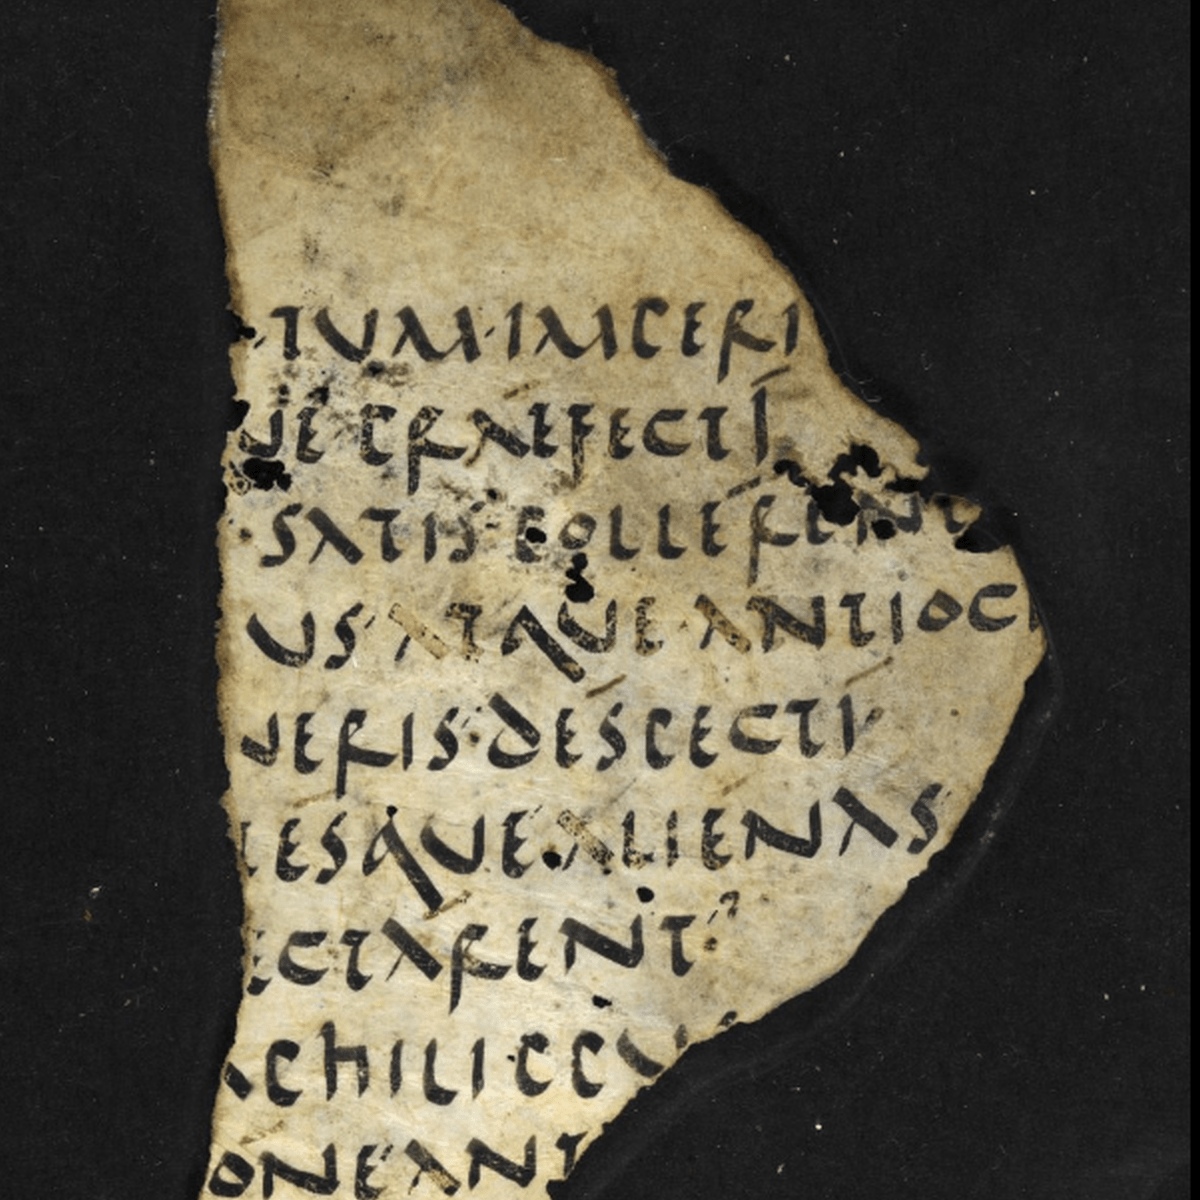 ·TUM·IMPERI
UE PRAEFECTI
·SATIS·POLLERENT
US·ATQUE·ANTIOCH
UERIS·DESPECTI
ESQUE·ALIENAS
ECTARENT
A PHILIPPUS
ONE ANT